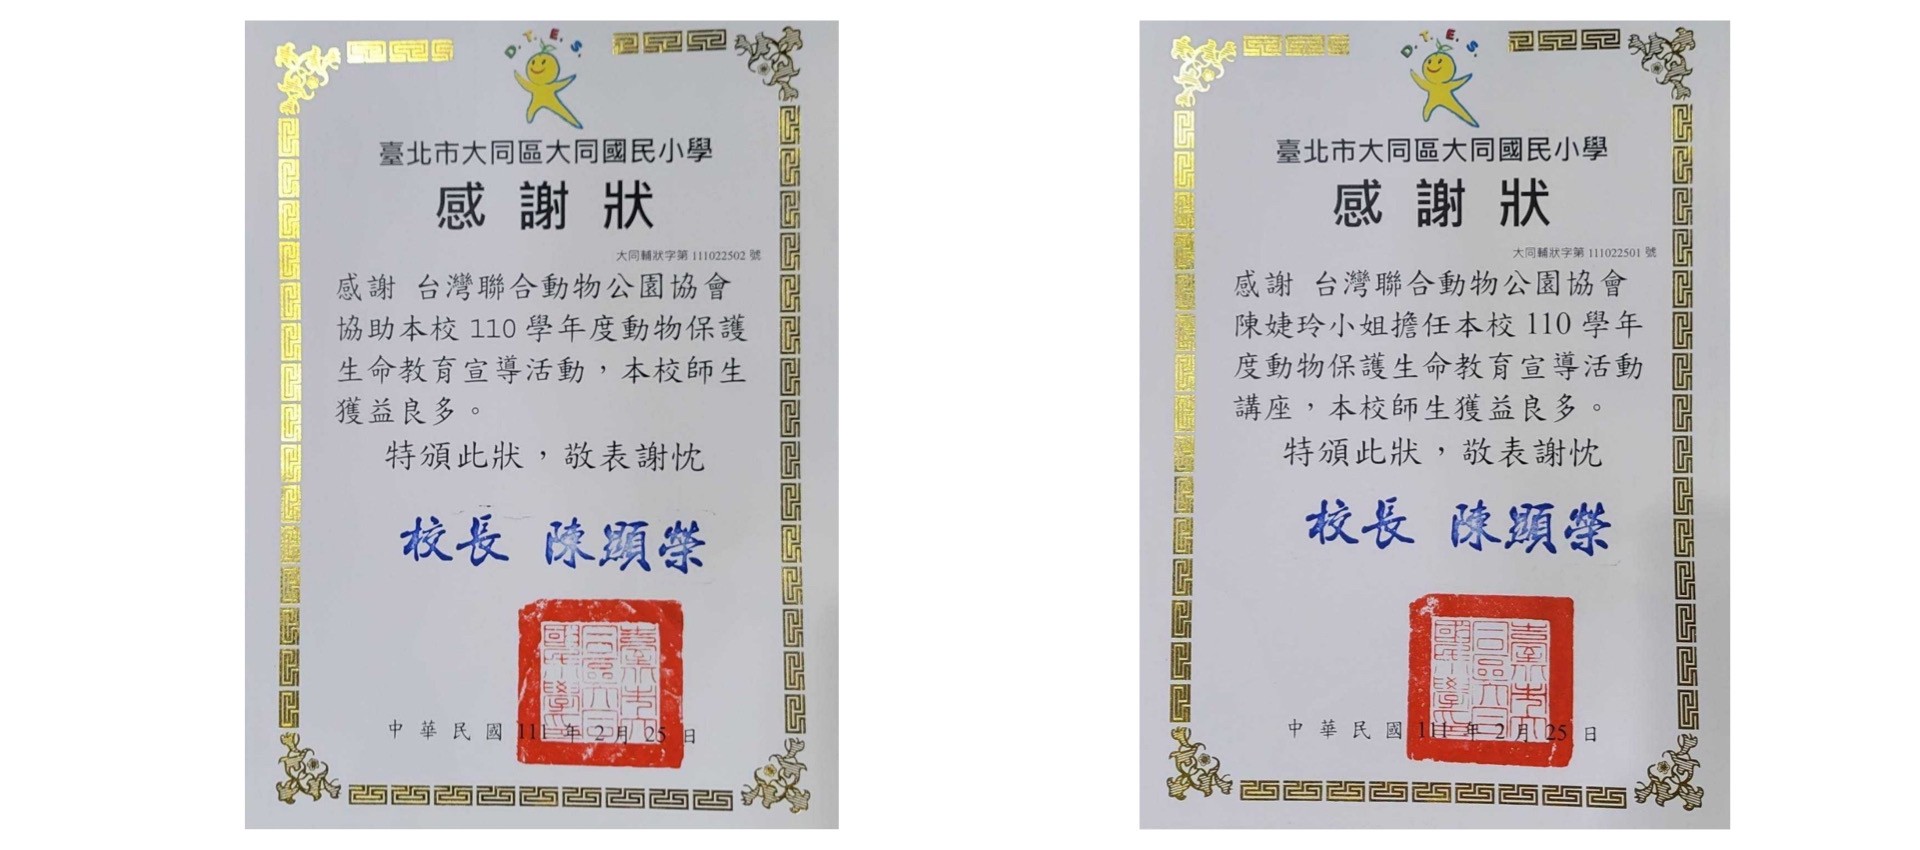 D.T.E.S.
臺北市大同區大同國民小學
感謝狀
大同輔狀字第 111022502 號
感謝 台灣聯合動物公園協會
協助本校 110 學年度動物保護
生命教育宣導活動，本校師生
獲益良多。
特頒此狀，敬表謝忱
校長 陳顯榮
中華民國 111 年 2 月 25 日
D.T.E.S.
臺北市大同區大同國民小學
感謝狀
大同輔狀字第 111022501 號
感謝 台灣聯合動物公園協會
陳婕玲小姐擔任本校 110 學年
度動物保護生命教育宣導活動
講座，本校師生獲益良多。
特頒此狀，敬表謝忱
校長 陳顯榮
中華民國 111 年 2 月 25 日